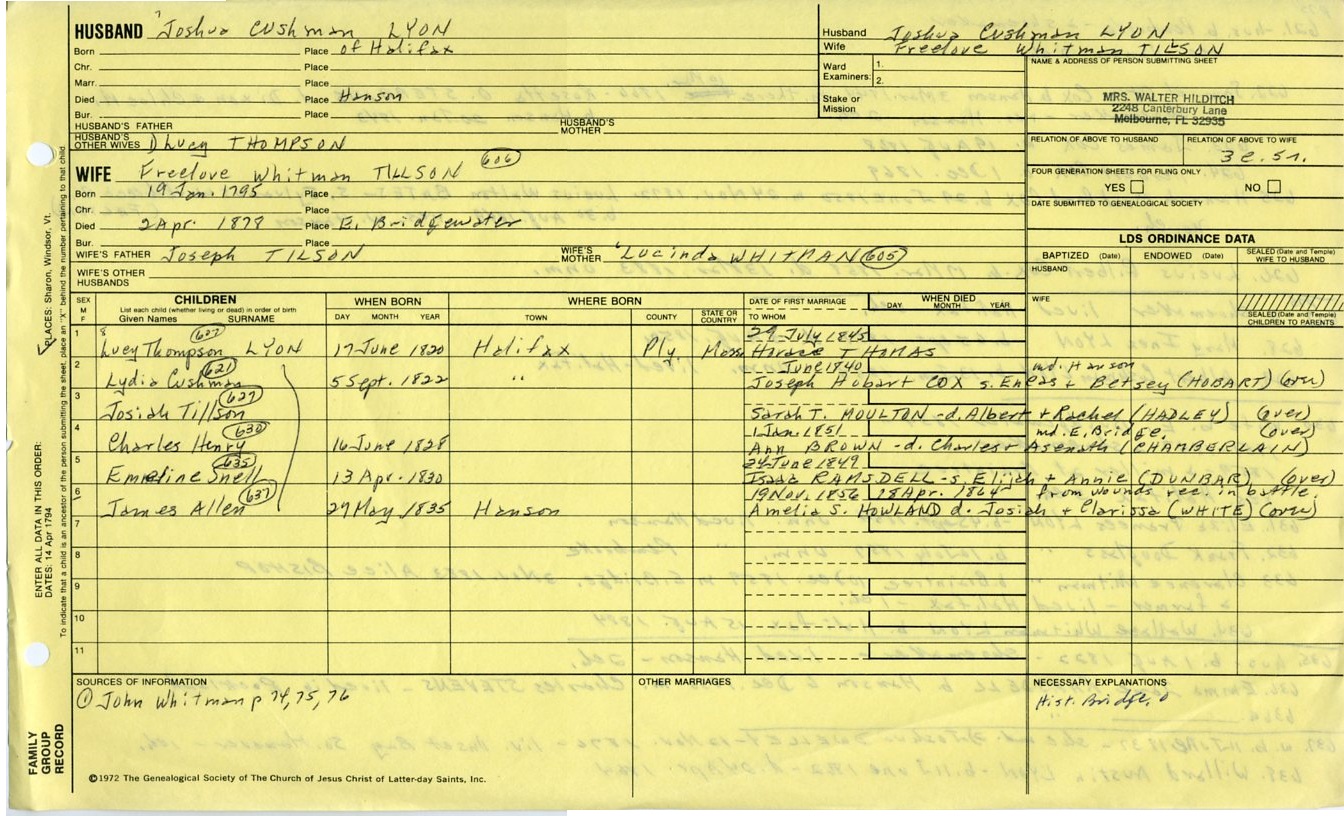 HUSBAND Joshua Cushman LYON
Born Place of Halifax
Chr. Place
Marr. Place
Died Place Hanson
Bur. Place
HUSBAND'S FATHER HUSBAND'S MOTHER
HUSBAND'S OTHER WIVES Lucy THOMPSON
Husband Joshua Cushman LYON
Wife Freelove Whitman TILSON
Ward Examiners: 1. 2.
Stake or Mission
NAME & ADDRESS OF PERSON SUBMITTING SHEET
MRS. WALTER HILDITCH
2248 Canterbury Lane
Melbourne, FL 32935
RELATION OF ABOVE TO HUSBAND RELATION OF ABOVE TO WIFE
3c. 5r.
FOUR GENERATION SHEETS FOR FILING ONLY
YES NO
DATE SUBMITTED TO GENEALOGICAL SOCIETY
WIFE Freelove Whitman TILLSON 606
Born 19 Jan. 1795 Place
Chr. Place
Died 2 Apr. 1878 Place E. Bridgewater
Bur. Place
WIFE'S FATHER Joseph TILSON WIFE'S MOTHER Lucinda WHITMAN 605
WIFE'S OTHER HUSBANDS
LDS ORDINANCE DATA
BAPTIZED (Date) ENDOWED (Date) SEALED (Date and Temple) WIFE TO HUSBAND
HUSBAND
WIFE
SEALED (Date and Temple) CHILDREN TO PARENTS
SEX M F
CHILDREN
List each child (whether living or dead) in order of birth
Given Names SURNAME
WHEN BORN
DAY MONTH YEAR
WHERE BORN
TOWN COUNTY STATE OR COUNTRY
DATE OF FIRST MARRIAGE
TO WHOM
WHEN DIED
DAY MONTH YEAR
1 Lucy Thompson LYON 17 June 1820 Halifax Ply. Mass 29 July 1845 Horace THOMAS
2 Lydia Cushman 621 5 Sept. 1822 " June 1840 md. Hanson Joseph Hobart COX s. Eneas + Betsey (HOBART) (over)
3 Josiah Tillson 627 Sarah T. MOULTON - d. Albert + Rachel (HADLEY) (over)
4 Charles Henry 630 16 June 1828 1 Jan. 1851 md. E. Bridge. (over) Ann BROWN - d. Charles + Asenath (CHAMBERLAIN)
5 Emeline Snell 635 13 Apr. 1830 24 June 1849 Isaac RAMSDELL - s. Elijah + Annie (DUNBAR) (over)
6 James Allen 637 29 May 1835 Hanson 19 Nov. 1856 18 Apr. 1864 from wounds rec. in battle. Amelia S. HOWLAND d. Josiah + Clarissa (WHITE) (over)
7
8
9
10
11
SOURCES OF INFORMATION
① John Whitman p 74, 75, 76
OTHER MARRIAGES
NECESSARY EXPLANATIONS
Hist. Bridge.
©1972 The Genealogical Society of The Church of Jesus Christ of Latter-day Saints, Inc.
FAMILY GROUP RECORD
ENTER ALL DATA IN THIS ORDER:
DATES: 14 Apr 1794
PLACES: Sharon, Windsor, Vt.
To indicate that a child is an ancestor of the person submitting the sheet, place an "X" behind the number pertaining to that child.